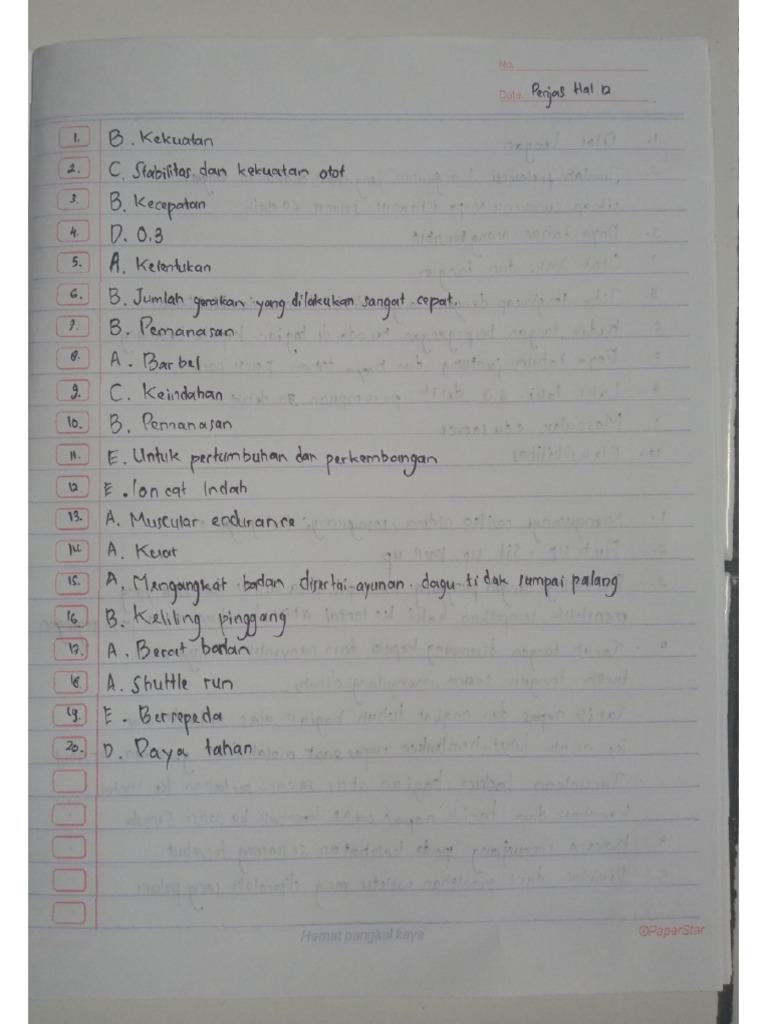 No.
Date. Penjas Hal 12
1. B. Kekuatan
2. C. Stabilitas dan kekuatan otot
3. B. Kecepatan
4. D. 0.3
5. A. Kelentukan
6. B. Jumlah gerakan yang dilakukan sangat cepat.
7. B. Pemanasan
8. A. Barbel
9. C. Keindahan
10. B. Pemanasan
11. E. Untuk pertumbuhan dan perkembangan
12 E. loncat Indah
13. A. Muscular endurance
14. A. Kuat
15. A. Mengangkat badan disertai ayunan dagu tidak sampai palang
16 B. Keliling pinggang
17. A. Berat badan
18. A. Shuttle run
19. E. Bersepeda
20. D. Daya tahan
Hemat pangkal kaya
PaperStar